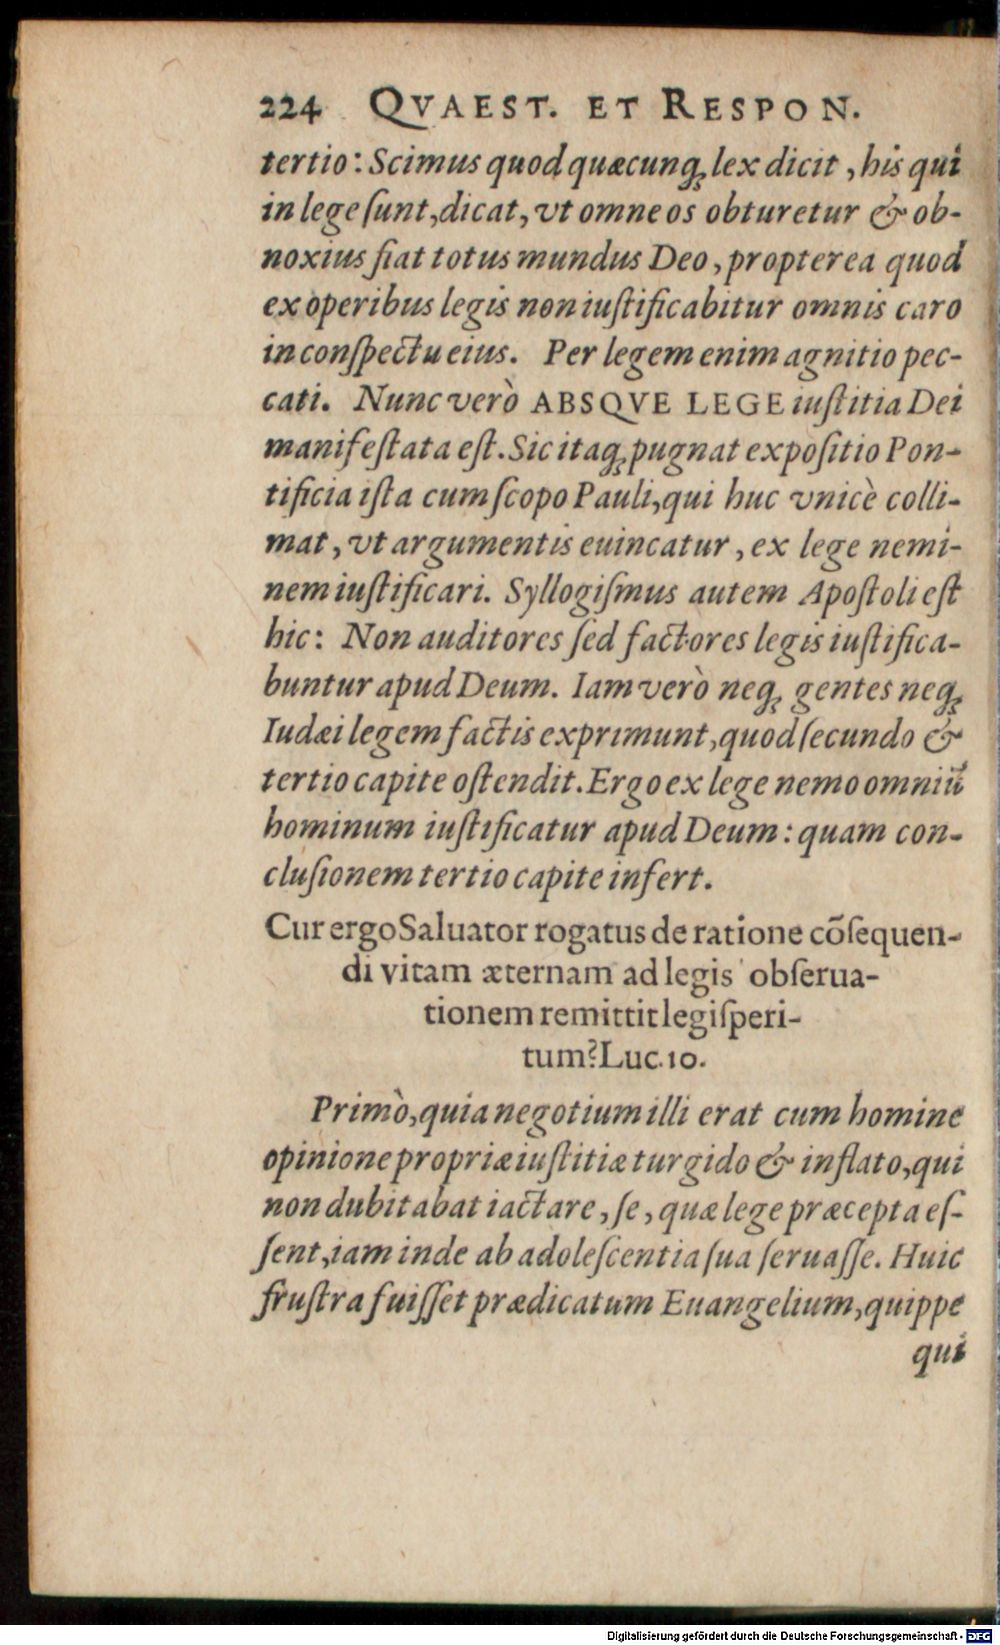 224 QVAEST. ET RESPON.
tertio: Scimus quod quæcunq; lex dicit, his qui
in lege ſunt, dicat, vt omne os obturetur & ob-
noxius fiat totus mundus Deo, propterea quod
ex operibus legis non iuſtificabitur omnis caro
in conſpectu eius. Per legem enim agnitio pec-
cati. Nunc verò ABSQVE LEGE iuſtitia Dei
manifeſtata eſt. Sic itaq; pugnat expoſitio Pon-
tificia iſta cum ſcopo Pauli, qui huc vnicè colli-
mat, vt argumentis euincatur, ex lege nemi-
nem iuſtificari. Syllogiſmus autem Apoſtoli eſt
hic: Non auditores ſed factores legis iuſtifica-
buntur apud Deum. Iam verò neq; gentes neq;
Iudæi legem factis exprimunt, quod ſecundo &
tertio capite oſtendit. Ergo ex lege nemo omniũ
hominum iuſtificatur apud Deum: quam con-
cluſionem tertio capite infert.
Cur ergo Saluator rogatus de ratione cõſequen-
di vitam æternam ad legis obſerua-
tionem remittit legiſperi-
tum? Luc. 10.
Primò, quia negotium illi erat cum homine
opinione propriæ iuſtitiæ turgido & inflato, qui
non dubitabat iactare, ſe, quæ lege præcepta eſ-
ſent, iam inde ab adoleſcentia ſua ſeruaſſe. Huic
fruſtra fuiſſet prædicatum Euangelium, quippe
qui
Digitalisierung gefördert durch die Deutsche Forschungsgemeinschaft - DFG